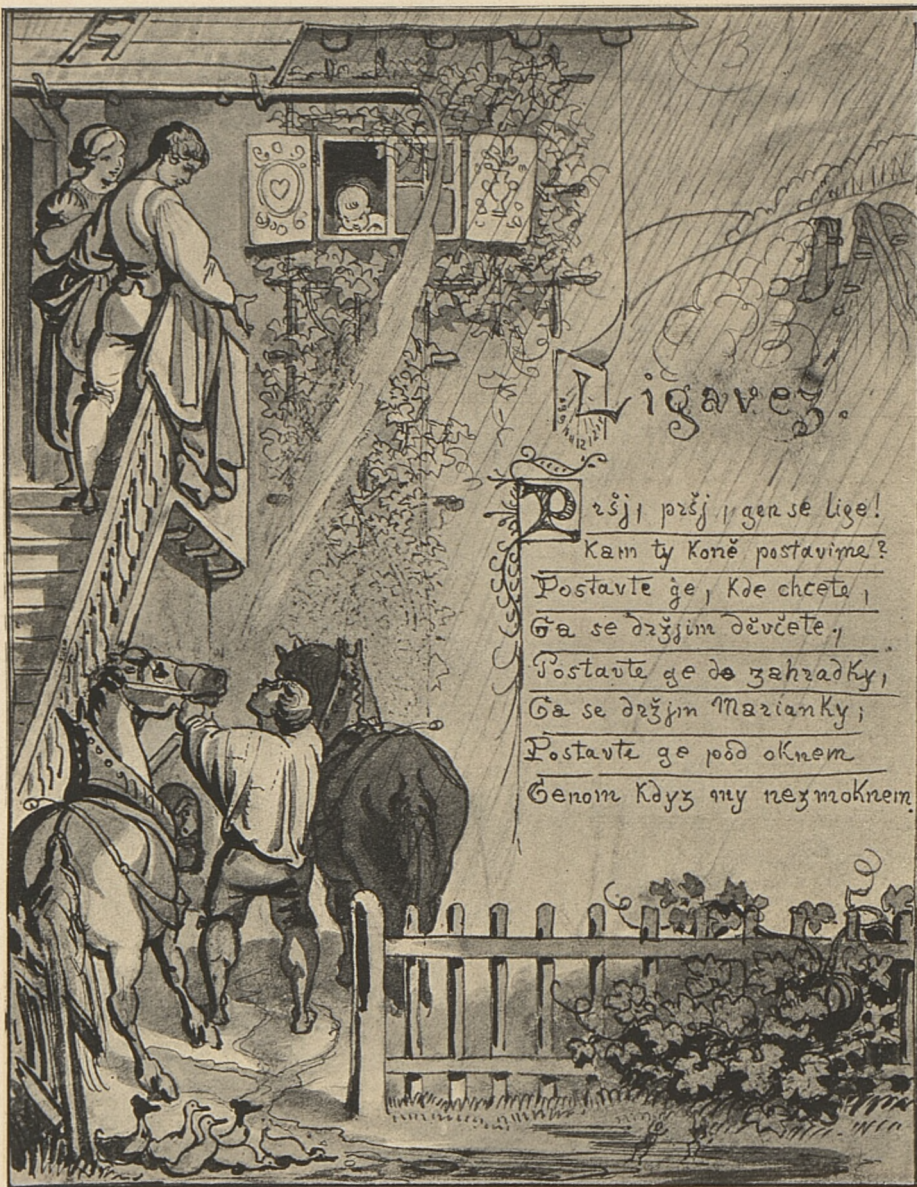 Ligavez.
Pršj, pršj, gen se lige!
Kam ty Koně postavime?
Postavte ge, Kde chcete,
Ga se držjim děvčete,
Postavte ge do zahradky,
Ga se držjm Marianky;
Postavte ge pod oknem
Genom Kdyz my nezmoknem.